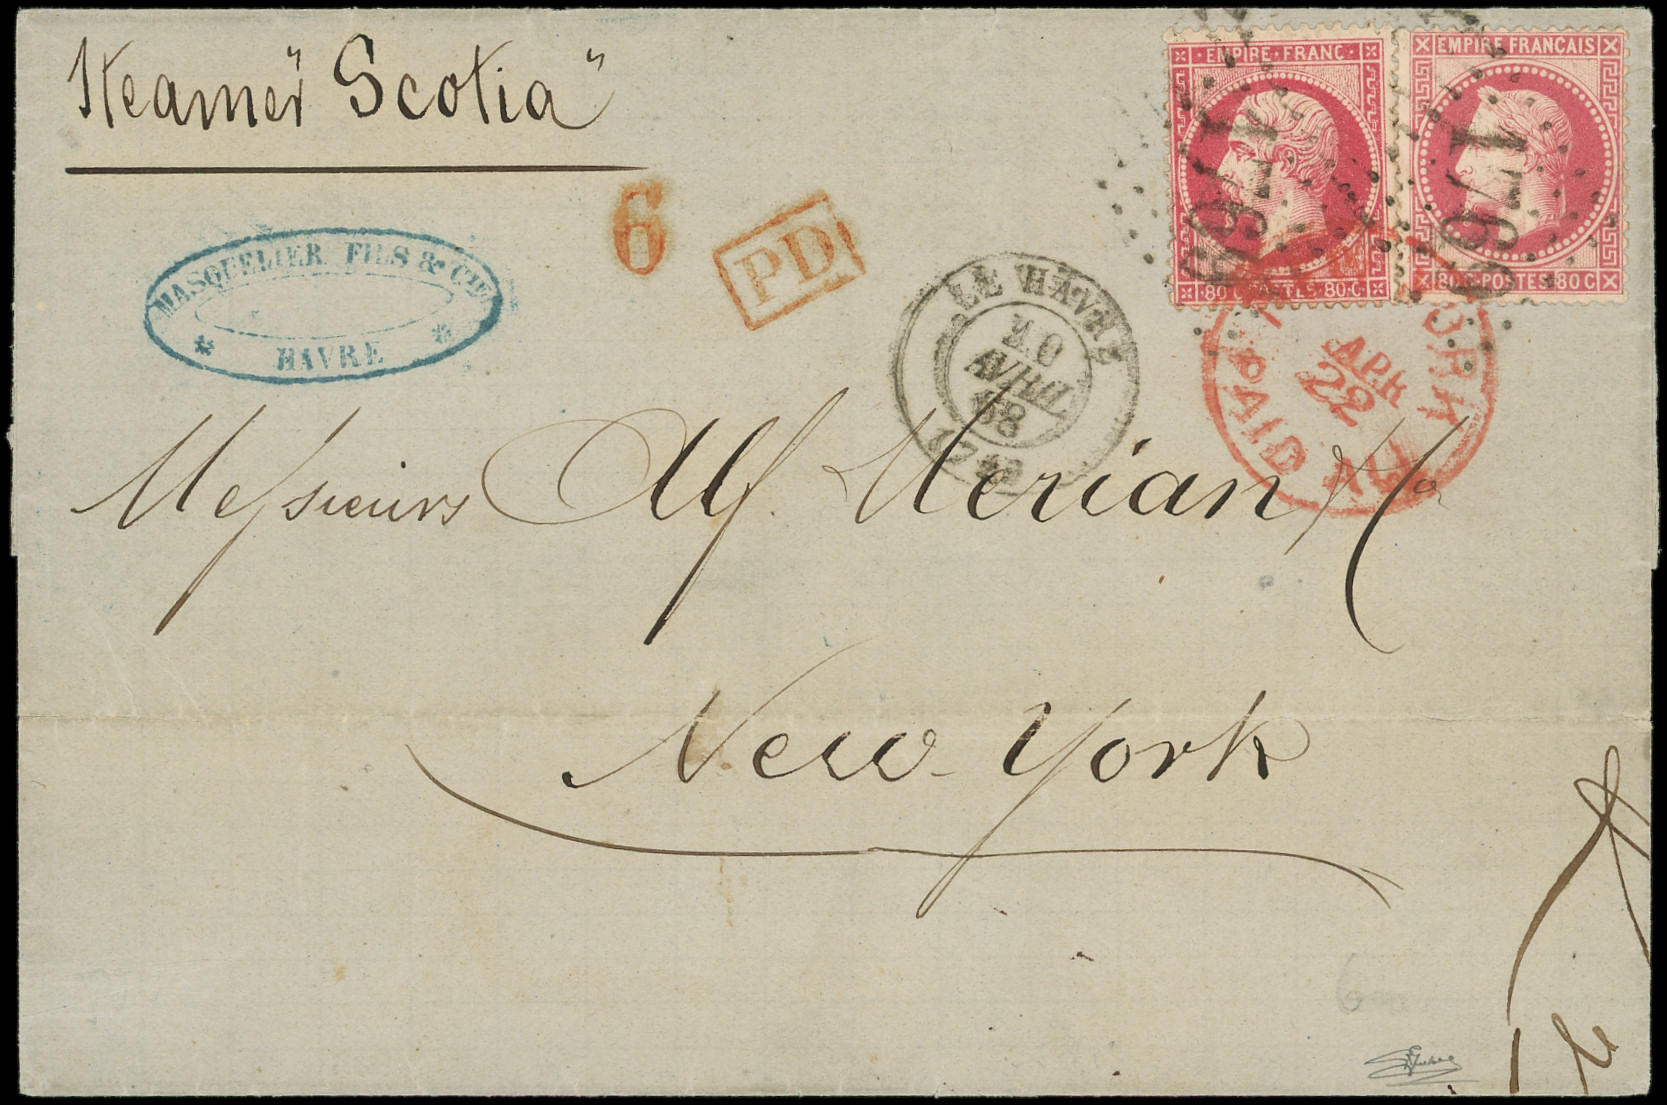 Steamer "Scotia"
EMPIRE FRANC
80 C POSTES 80 C
EMPIRE FRANCAIS
80 C POSTES 80 C
1769
1769
MASQUELIER FILS & CIE
HAVRE
6
PD
LE HAVRE
10
AVRIL
68
NEW YORK
PAID
APR
22
Messieurs Alf Merian &
New-York